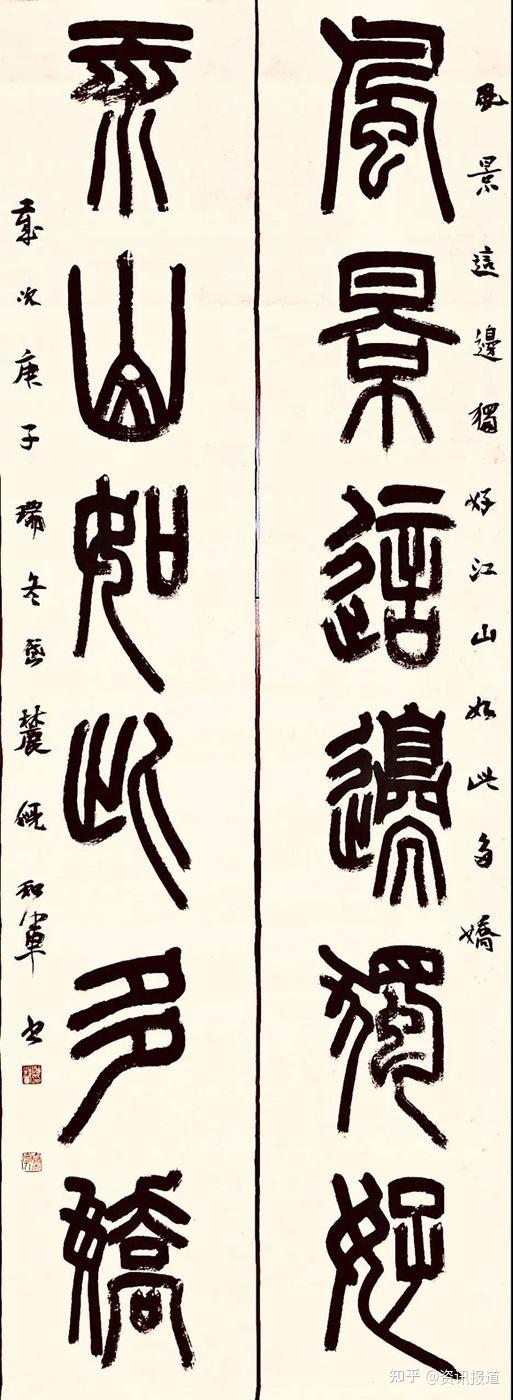 風景這邊獨好江山如此多嬌
風景這邊獨好
江山如此多嬌
歲次庚子瑞冬岳麓 和軍书
知乎 @资讯报道